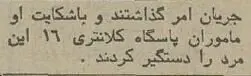 جریان امر گذاشتند و باشکایت او
ماموران پاسگاه کلانتری ۱۶ این
مرد را دستگیر کردند .